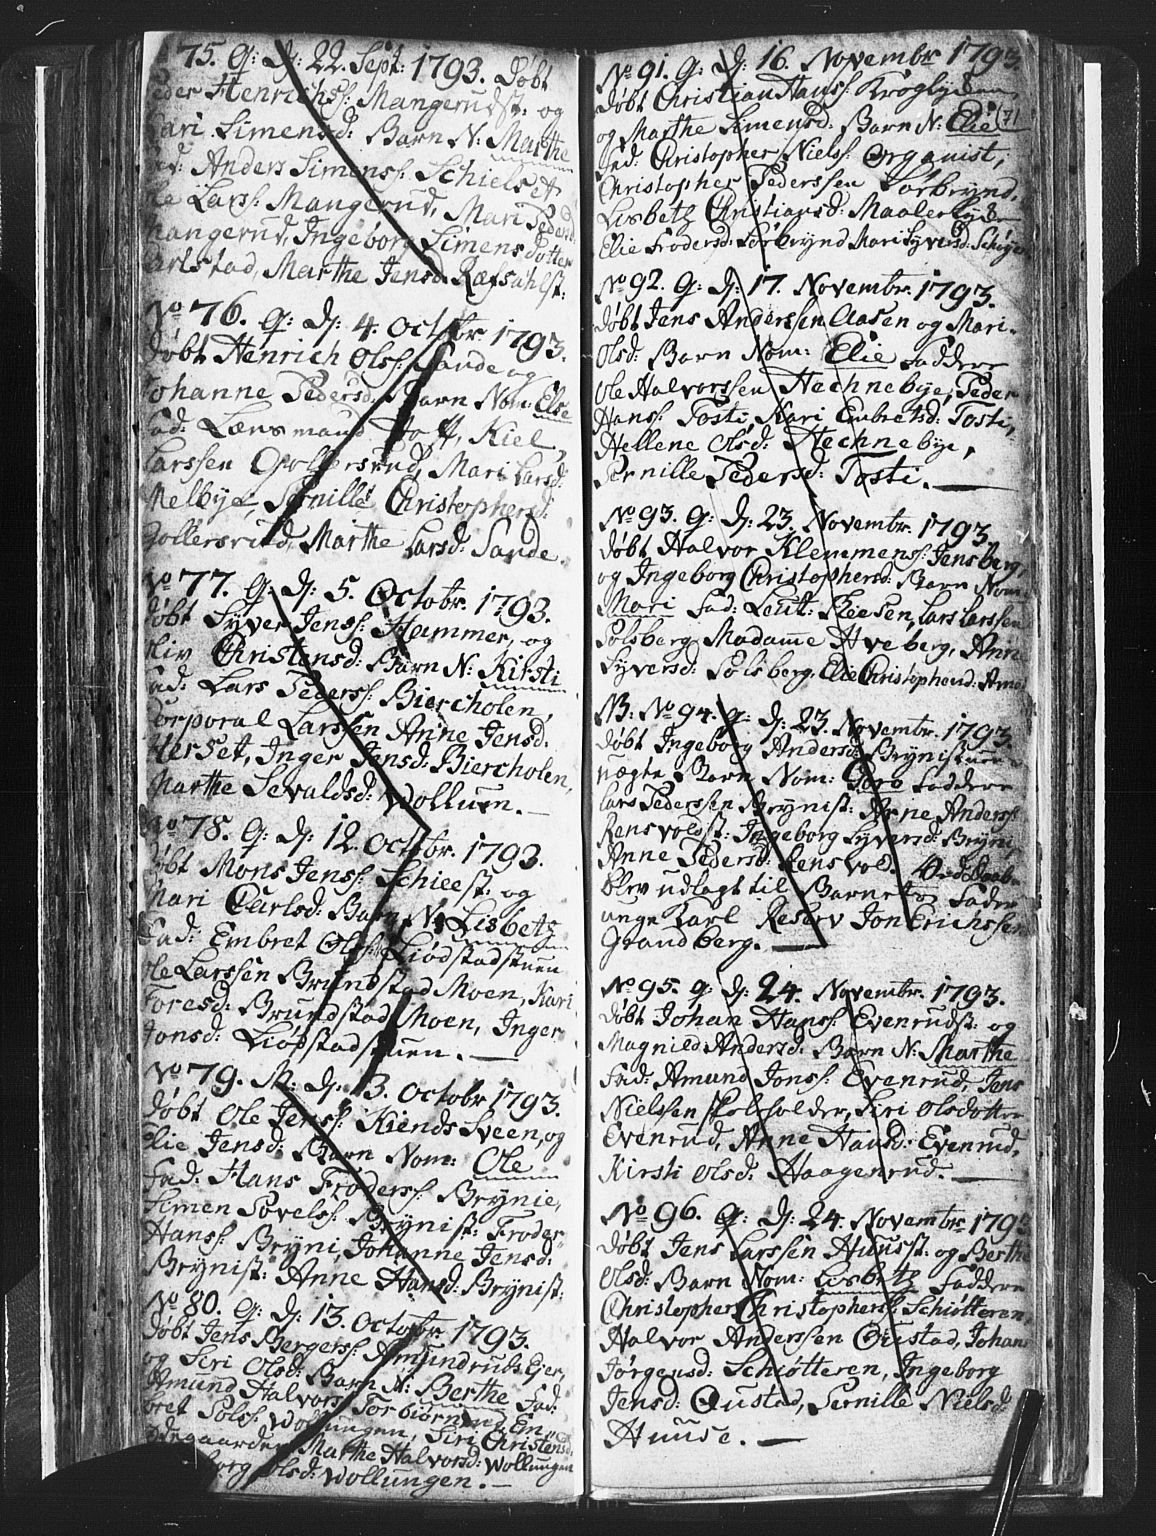 75. Q: D: 22. Sept: 1793. Døbt
Henrichs: Mangerudst: og
Kari Simensd: Barn N: Marthe
Fad: Anders Simens: Schielset
Ole Lars: Mangerud, Mari Pedersd:
Mangerud, Ingeborg Simens Dotter
Karlstad, Marthe Jensd: Ræfsahlst:
No 76. Q: D: 4. Octobr 1793.
Døbt Henrich Ols: Sande og
Johanne Pedersd: Barn Nom: Else
Fad: Lænsmand Hoff, Kiel
Larssen Gollersrud, Mari Larsd:
Melbye, Pernille Christophersd:
Gollersrud, Marthe Larsd: Sande.
No 77. Q: D: 5. Octobr. 1793.
Døbt Syver Jens: Hammer, og
Liv Christensd: Barn N: Kirsti
Fad: Lars Peders: Biercholen,
Corporal Larssen Anne Jensd.
Herset, Inger Jensd: Biercholen,
Marthe Sevaldsd: Wollum.
No 78. Q: D: 12. Octobr. 1793.
Døbt Mons Jens: Schieest: og
Mari Carlsd: Barn N: Lisbeth
Fad: Embret Ols: Liødstadstuen
Ole Larssen Brundstad Moen, Kari
Toresd: Brundstad Moen, Inger
Jonsd: Liødstadstuen.
No 79. D: 13. Octobr 1793.
Døbt Ole Jens: Kiends Sveen, og
Elie Jensd: Barn Nom: Ole
Fad: Hans Froders: Brynie,
Simen Povels: Brynist: Froder
Hans: Bryni, Johanne Jensd:
Brynist: Anne Hansd: Brynist:
No 80. Q: D: 13. Octobr 1793.
Døbt Jens Bergers: Amundruds Eier,
og Siri Olsd: Barn N: Berthe Fad:
Amund Halvors: Torbiørnrud, Em-
bret Pols: Wollungen, Siri Christensd:
Ødegaarden, Marthe Halvorsd: Wollungen
Olsd: Wollungen.
No 91. Q: D: 16. Novembr 1793.
Døbt Christian Hans: Kroglyden
og Marthe Simensd: Barn N: Elie 71
Fad: Christopher Niels: Organist,
Christopher Pederssen Sørbrynd,
Lisbeth Christiansd: Maalerlyden
Elie Frodersd: Sørbrynd Mari Syversd: Schøyen
No 92. Q: D: 17. Novembr. 1793.
Døbt Jens Anderssen Aasen og Mari
Olsd: Barn Nom: Elie Faddere
Ole Halvorssen Hechnebye, Peder
Hans: Tosti, Kari Embretsd: Tosti,
Hellene Olsd: Hechnebye,
Pernille Pedersd: Tosti.
No 93. Q: D: 23. Novembr. 1793.
Døbt Halvor Klemmens: Jensberg,
og Ingeborg Christophersd: Barn Nom:
Mari Fad: Leut: Lars Larssen
Solsberg, Madame Hveberg, Anne
Syversd: Solsberg, Elie Christophersd:
NB: No 94. Q: D: 23. Novembr. 1793.
Døbt Ingeborg Andersd: Brynistuen
uægte Barn Nom: Goro Faddere
Lars Pederssen Brynist: Arne Anders:
Rensvoldst: Ingeborg Syversd: Bryni,
Anne Pedersd: Rensvold. Ved Daab
blev udlagt til Barnets Fader
unge Karl Reserv Jon Erichssen
Grandberg.
No 95. Q: D: 24. Novembr. 1793.
Døbt Johan Hans: Evenrudst: og
Magnild Andersd: Barn N: Marthe
Fad: Amund Jons: Evenrud, Jens
Nielssen Skoleholder, Siri Olsdotter
Evenrud, Anne Hansd: Evenrud,
Kirsti Olsd: Haagenrud.
No 96. Q: D: 24. Novembr. 1793
Døbt Jens Larssen Huusst: og Berthe
Olsd: Barn Nom: Lisbeth Faddere
Christopher Christophers: Schiøtteren,
Halvor Anderssen Oustad, Johan
Jørgensd: Schiøtteren, Ingeborg
Jensd: Oustad, Pernille Nielsd:
Huuse.